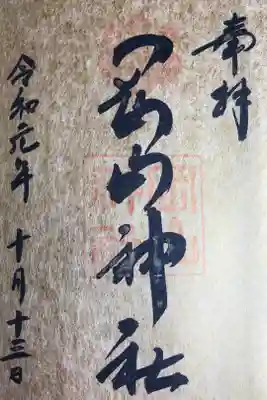 奉拝
岡山神社
令和元年 十月十三日